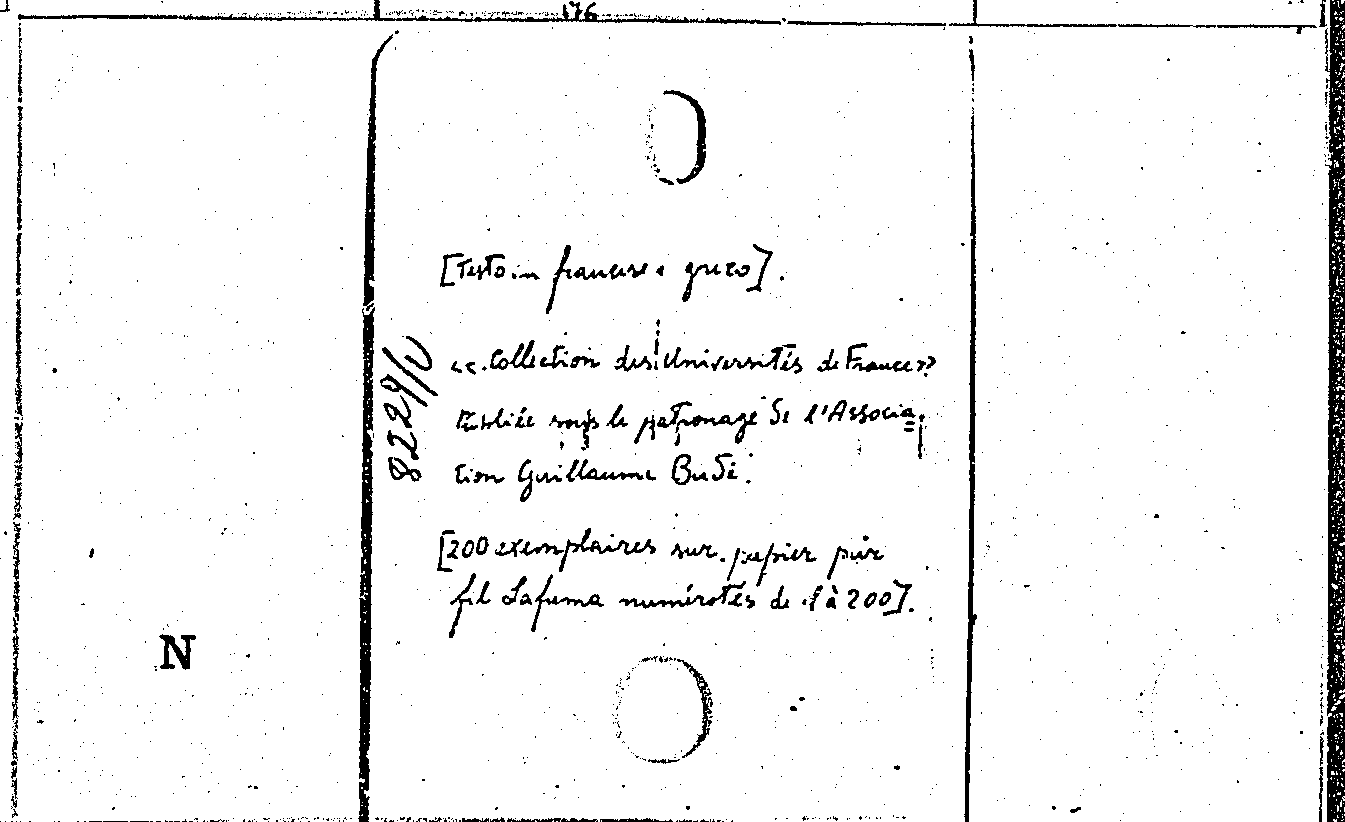 176
[Testo in francese e greco].
8229/V
«Collection des Universités de France»
Publiée sous le patronage de l'Associa=
tion Guillaume Budé.
[200 exemplaires sur papier pur
fil Lafuma numérotés de 1 à 200].
N